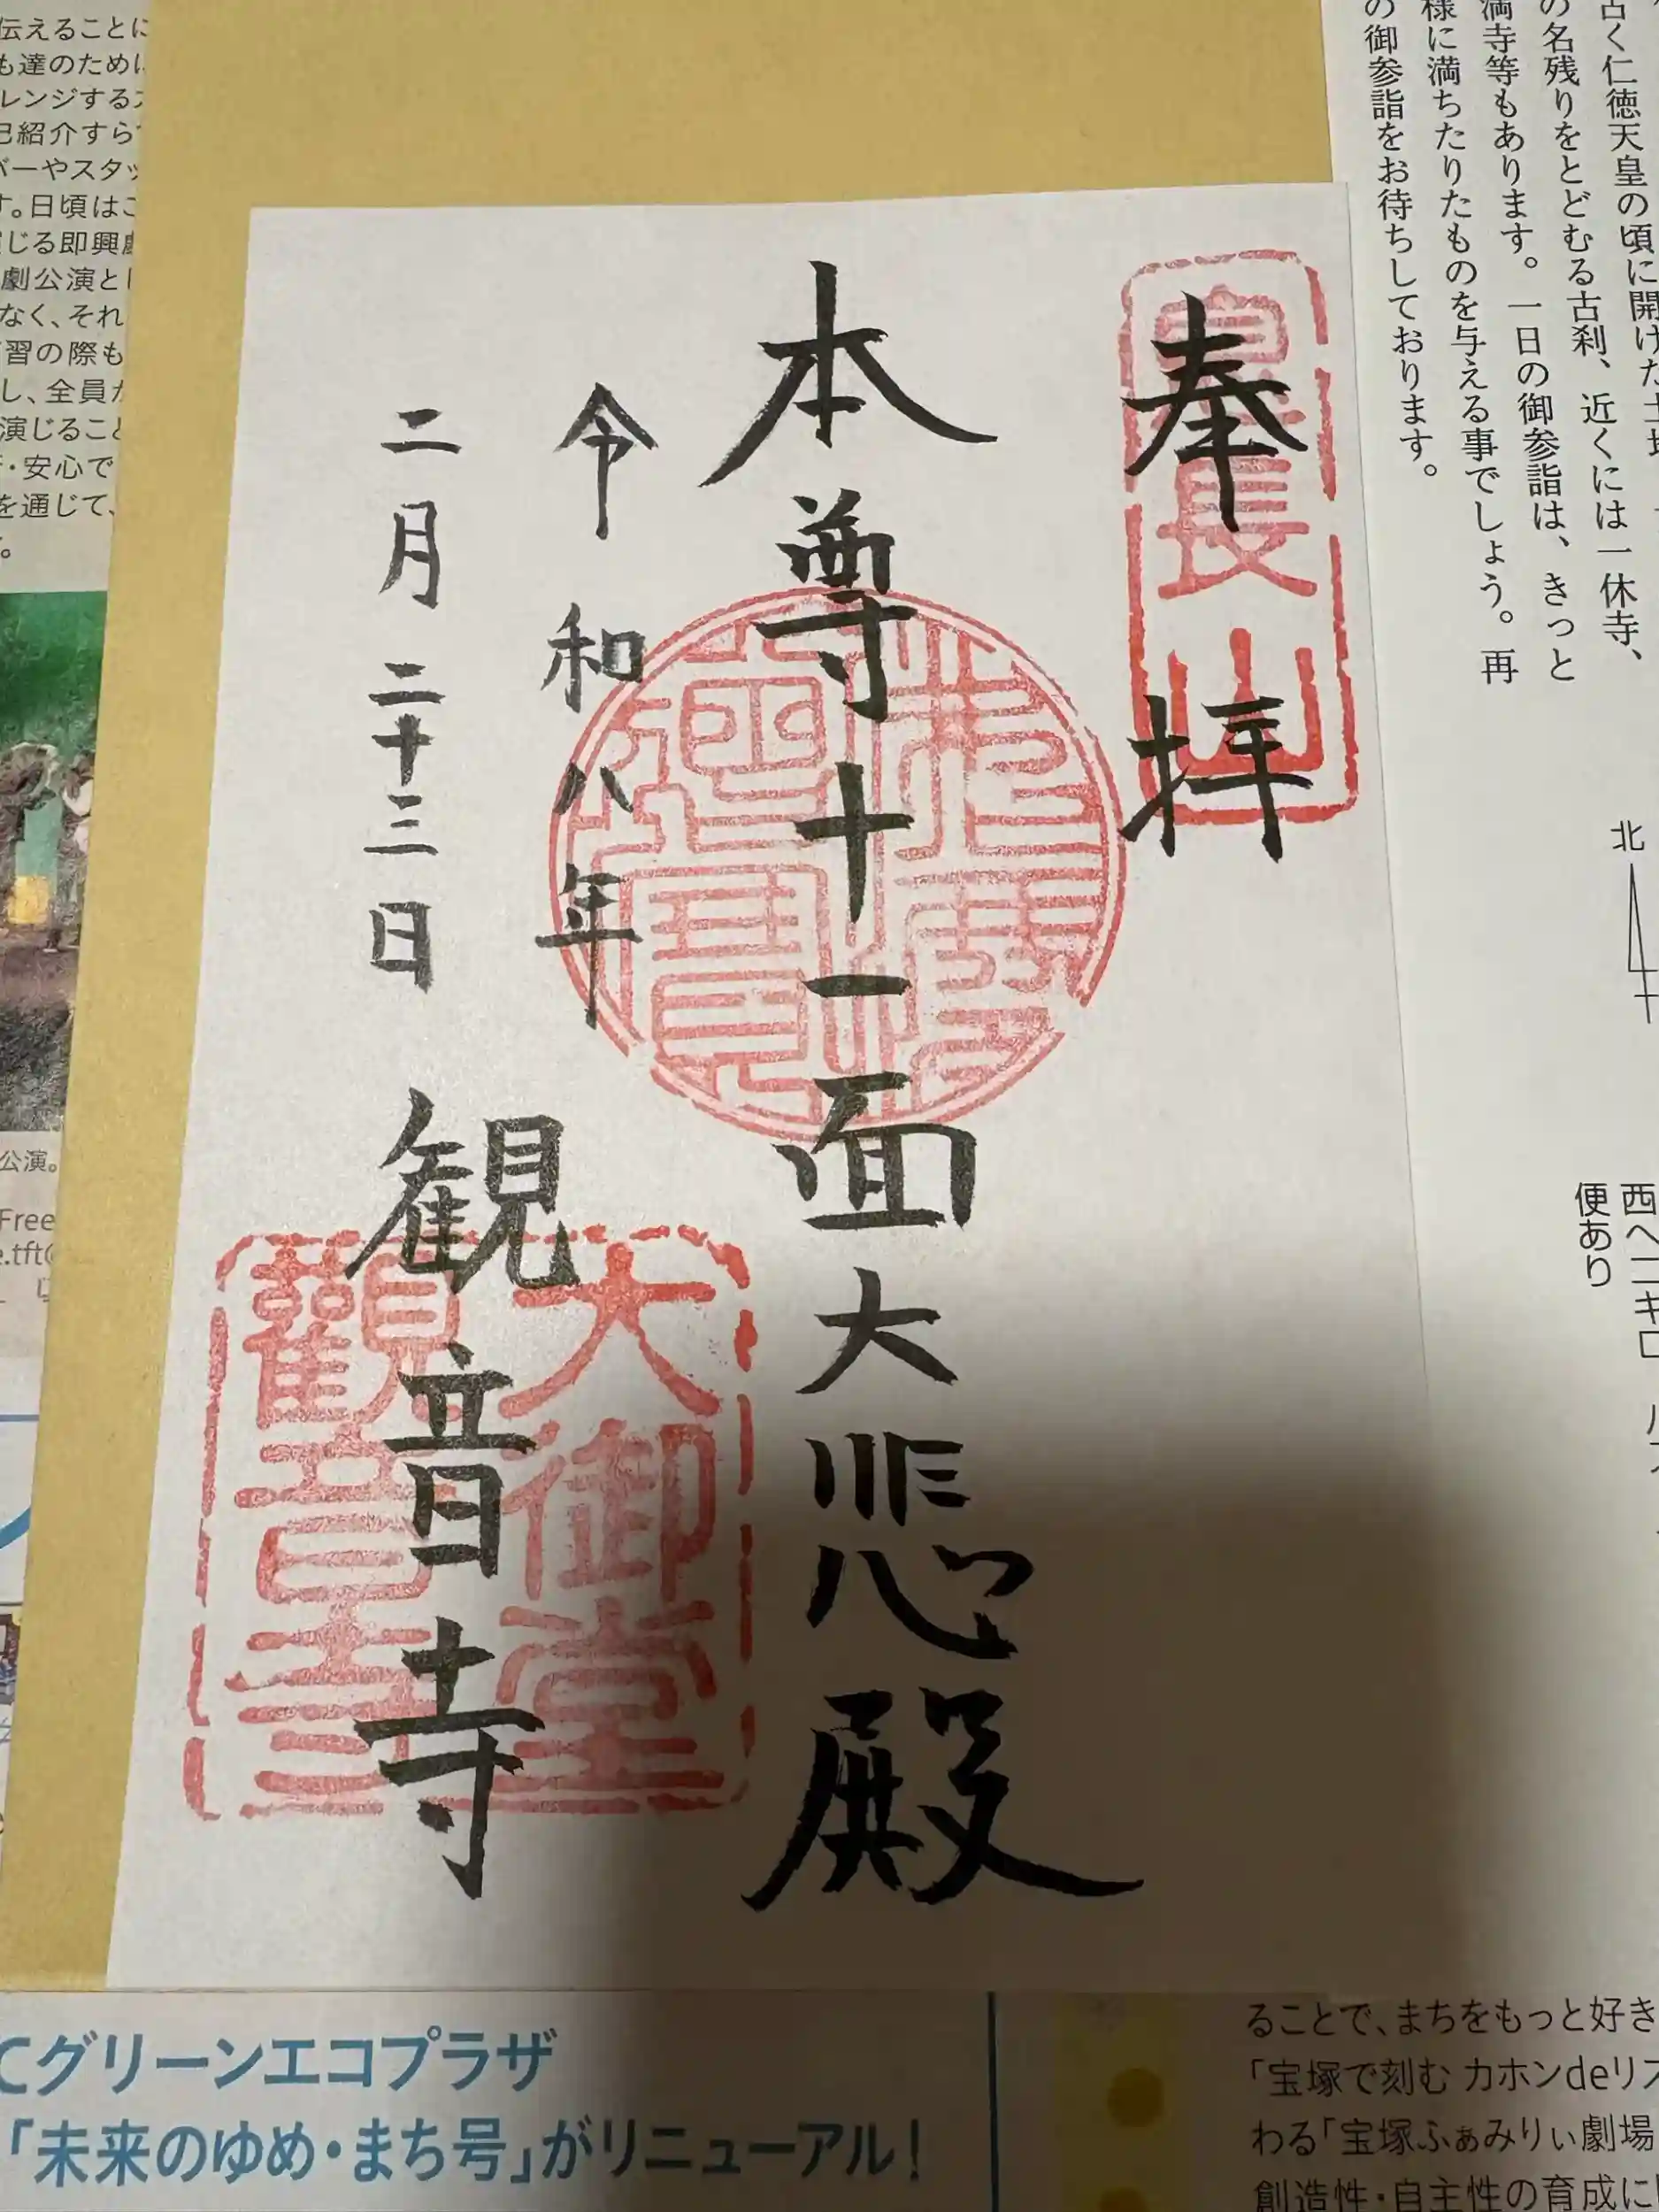 奉拝
本尊十一面大悲殿
令和八年
二月二十三日
観音寺
山
大御堂
觀音寺
古く仁徳天皇の頃に開けた土地
の名残りをとどむる古刹、近くには一休寺、
満寺等もあります。一日の御参詣は、きっと
様に満ちたりたものを与える事でしょう。再
の御参詣をお待ちしております。
北
西へ二キロ
便あり
伝えることに
も達のために
レンジする
己紹介すら
バーやスタッ
す。日頃はこ
じる即興劇
劇公演とし
なく、それ
習の際も
し、全員が
演じること
・安心で
を通じて、
。
公演。
Free
e.tft@
Cグリーンエコプラザ
「未来のゆめ・まち号」がリニューアル！
ることで、まちをもっと好き
「宝塚で刻む カホンdeリズ
わる「宝塚ふぁみりぃ劇場
創造性・自主性の育成に